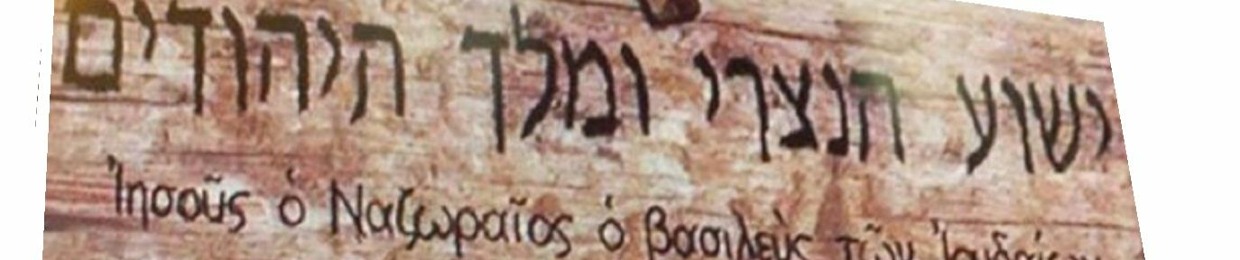 ישוע הנצרי ומלך היהודים
Ἰησοῦς ὁ Ναζωραῖος ὁ βασιλεὺς τῶν Ἰουδαίων